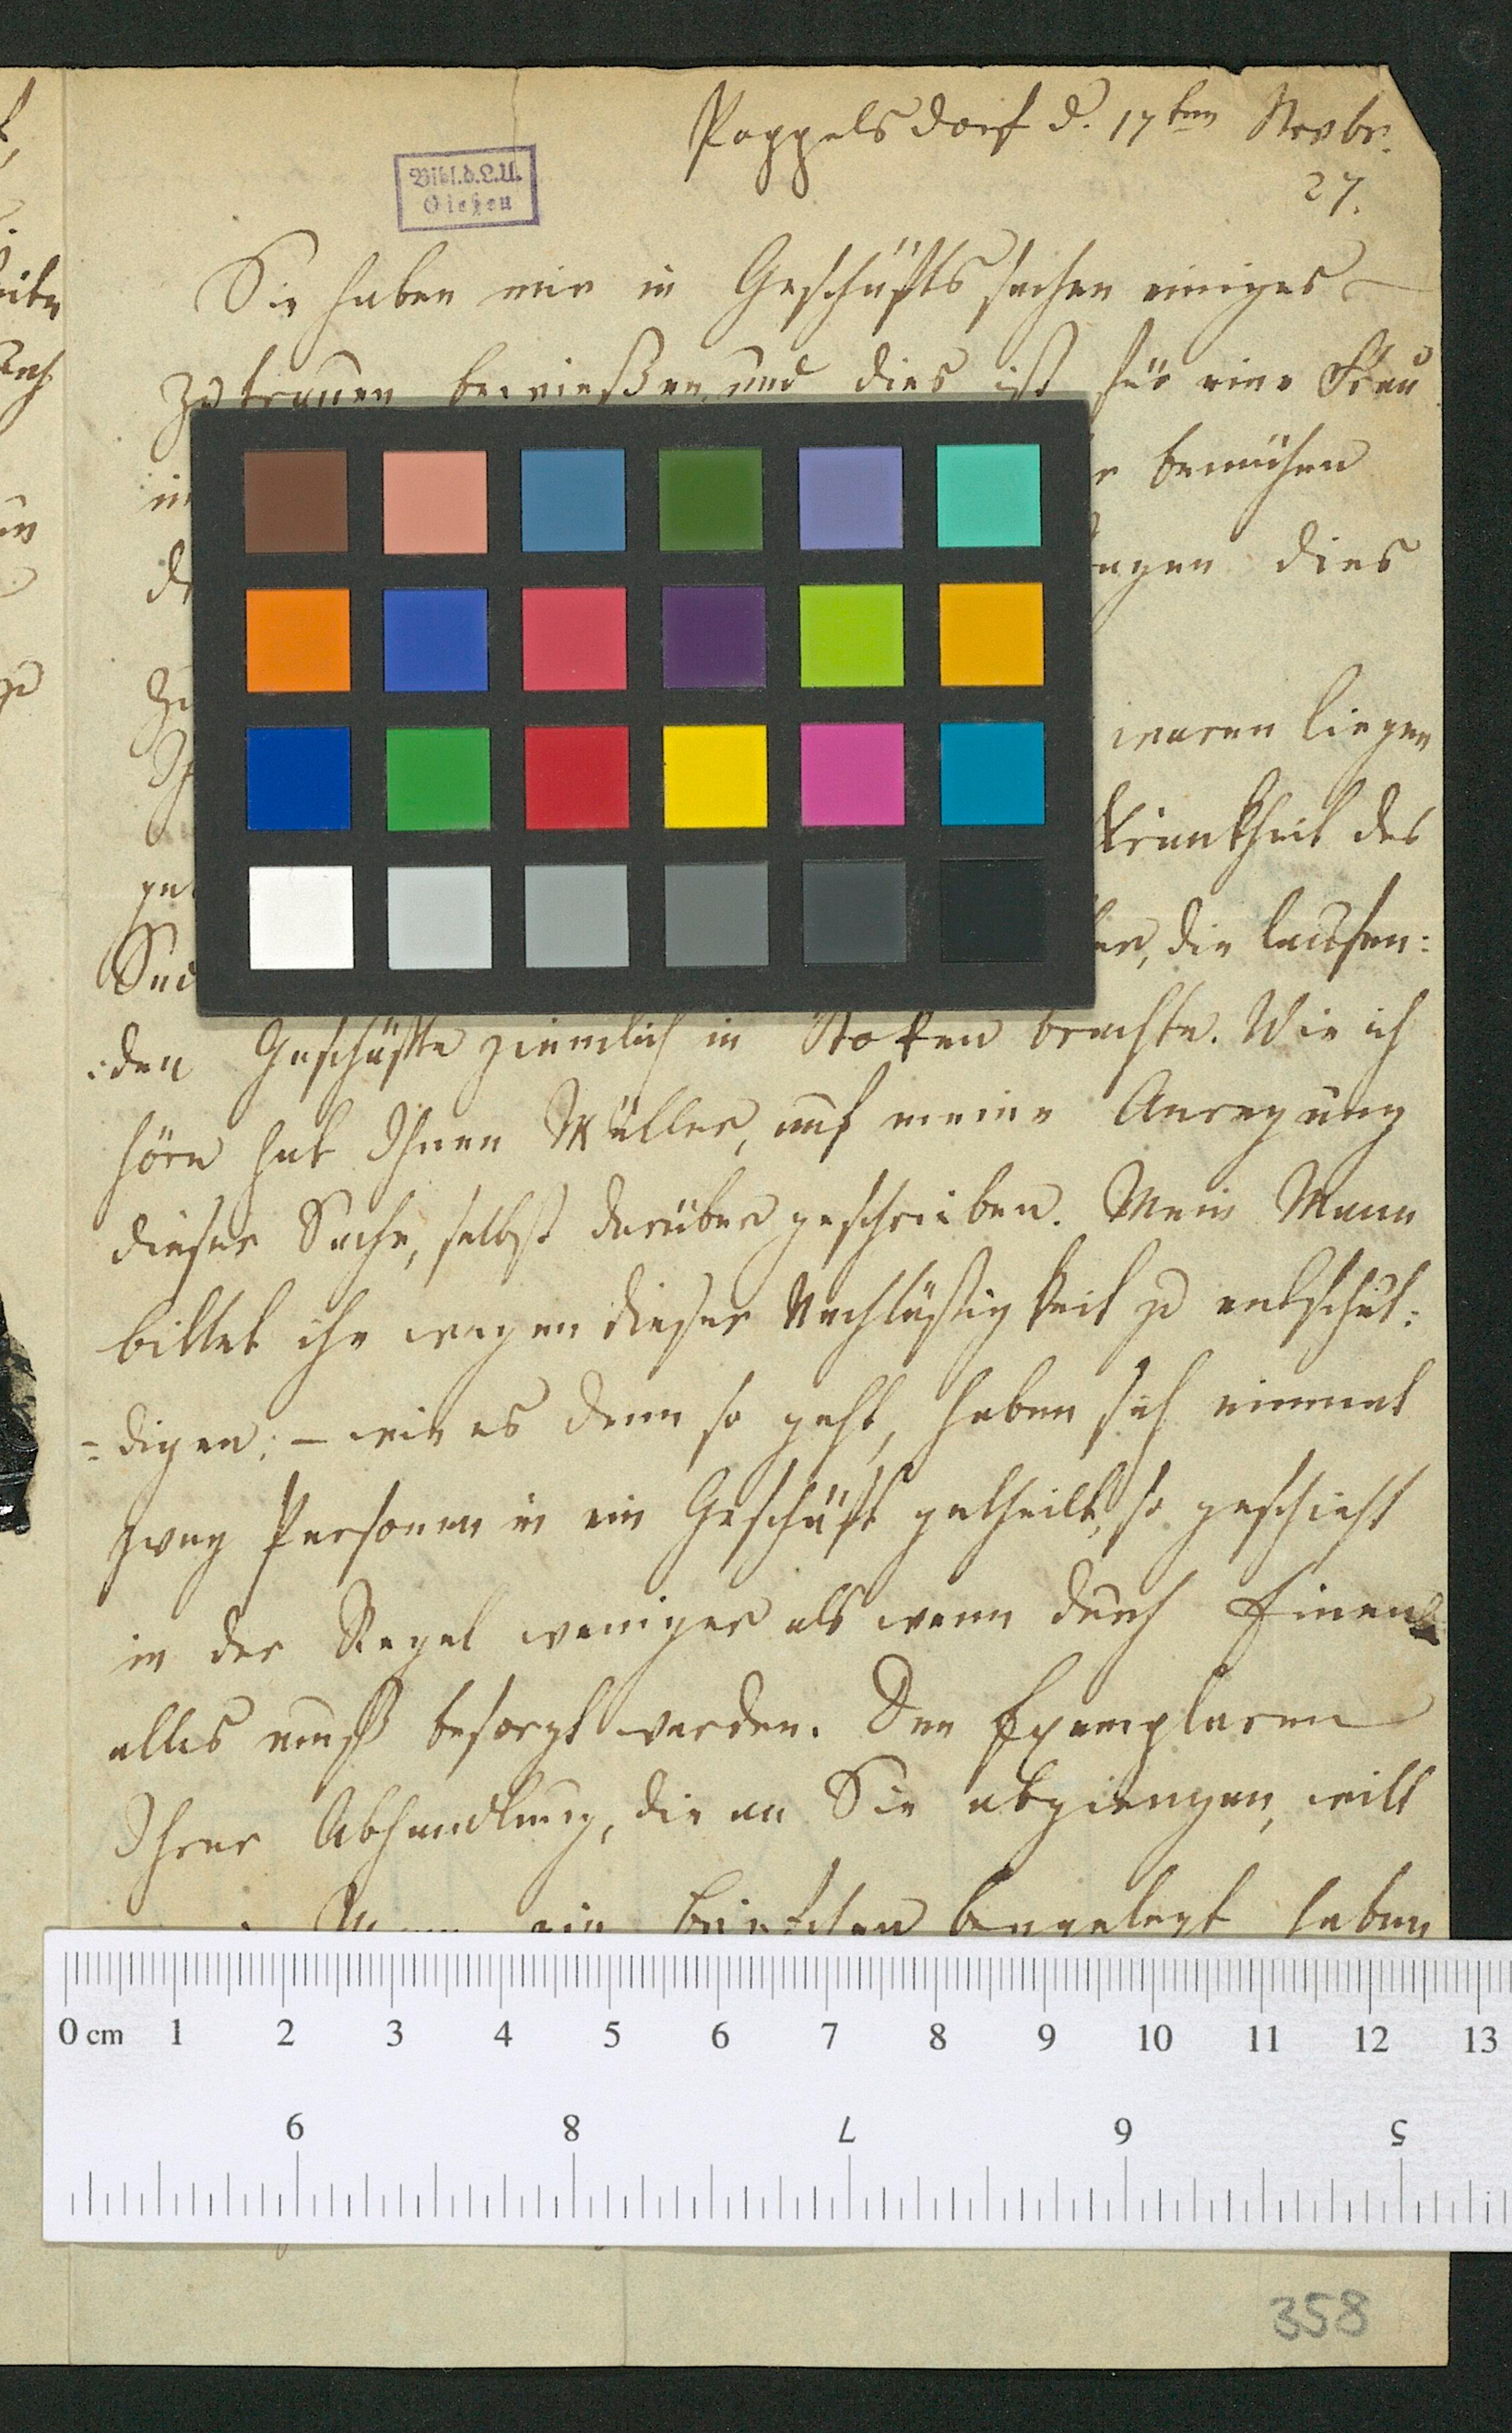 Poppelsdorf d. 17ten Novbr.
27.
Bibl. d. L.U.
Gießen
Sie haben mir in Geschäftssachen einiges
Zutrauen bewießen, und dies ist für eine Frau
bemühen
dies
waren liegen
Krankheit des
die laufen:
:den Geschäfte ziemlich in Stoken brachte. Wie ich
höre hat Ihnen Müller, auf meine Anregung
dieser Sache, selbst darüber geschrieben. Mein Mann
bittet ihn wegen dieser Nachläßigkeit zu entschul:
=digen; – wie es denn so geht, haben sich einmal
zwey Personen in ein Geschäft getheilt, so geschieht
in der Regel weniger als wenn durch Einen
alles muß besorgt werden. Den Exemplaren
Ihrer Abhandlung, die an Sie abgiengen, will
Mann ein Briefchen beygelegt haben
0 cm 1 2 3 4 5 6 7 8 9 10 11 12 13
9 8 7 6 5
358